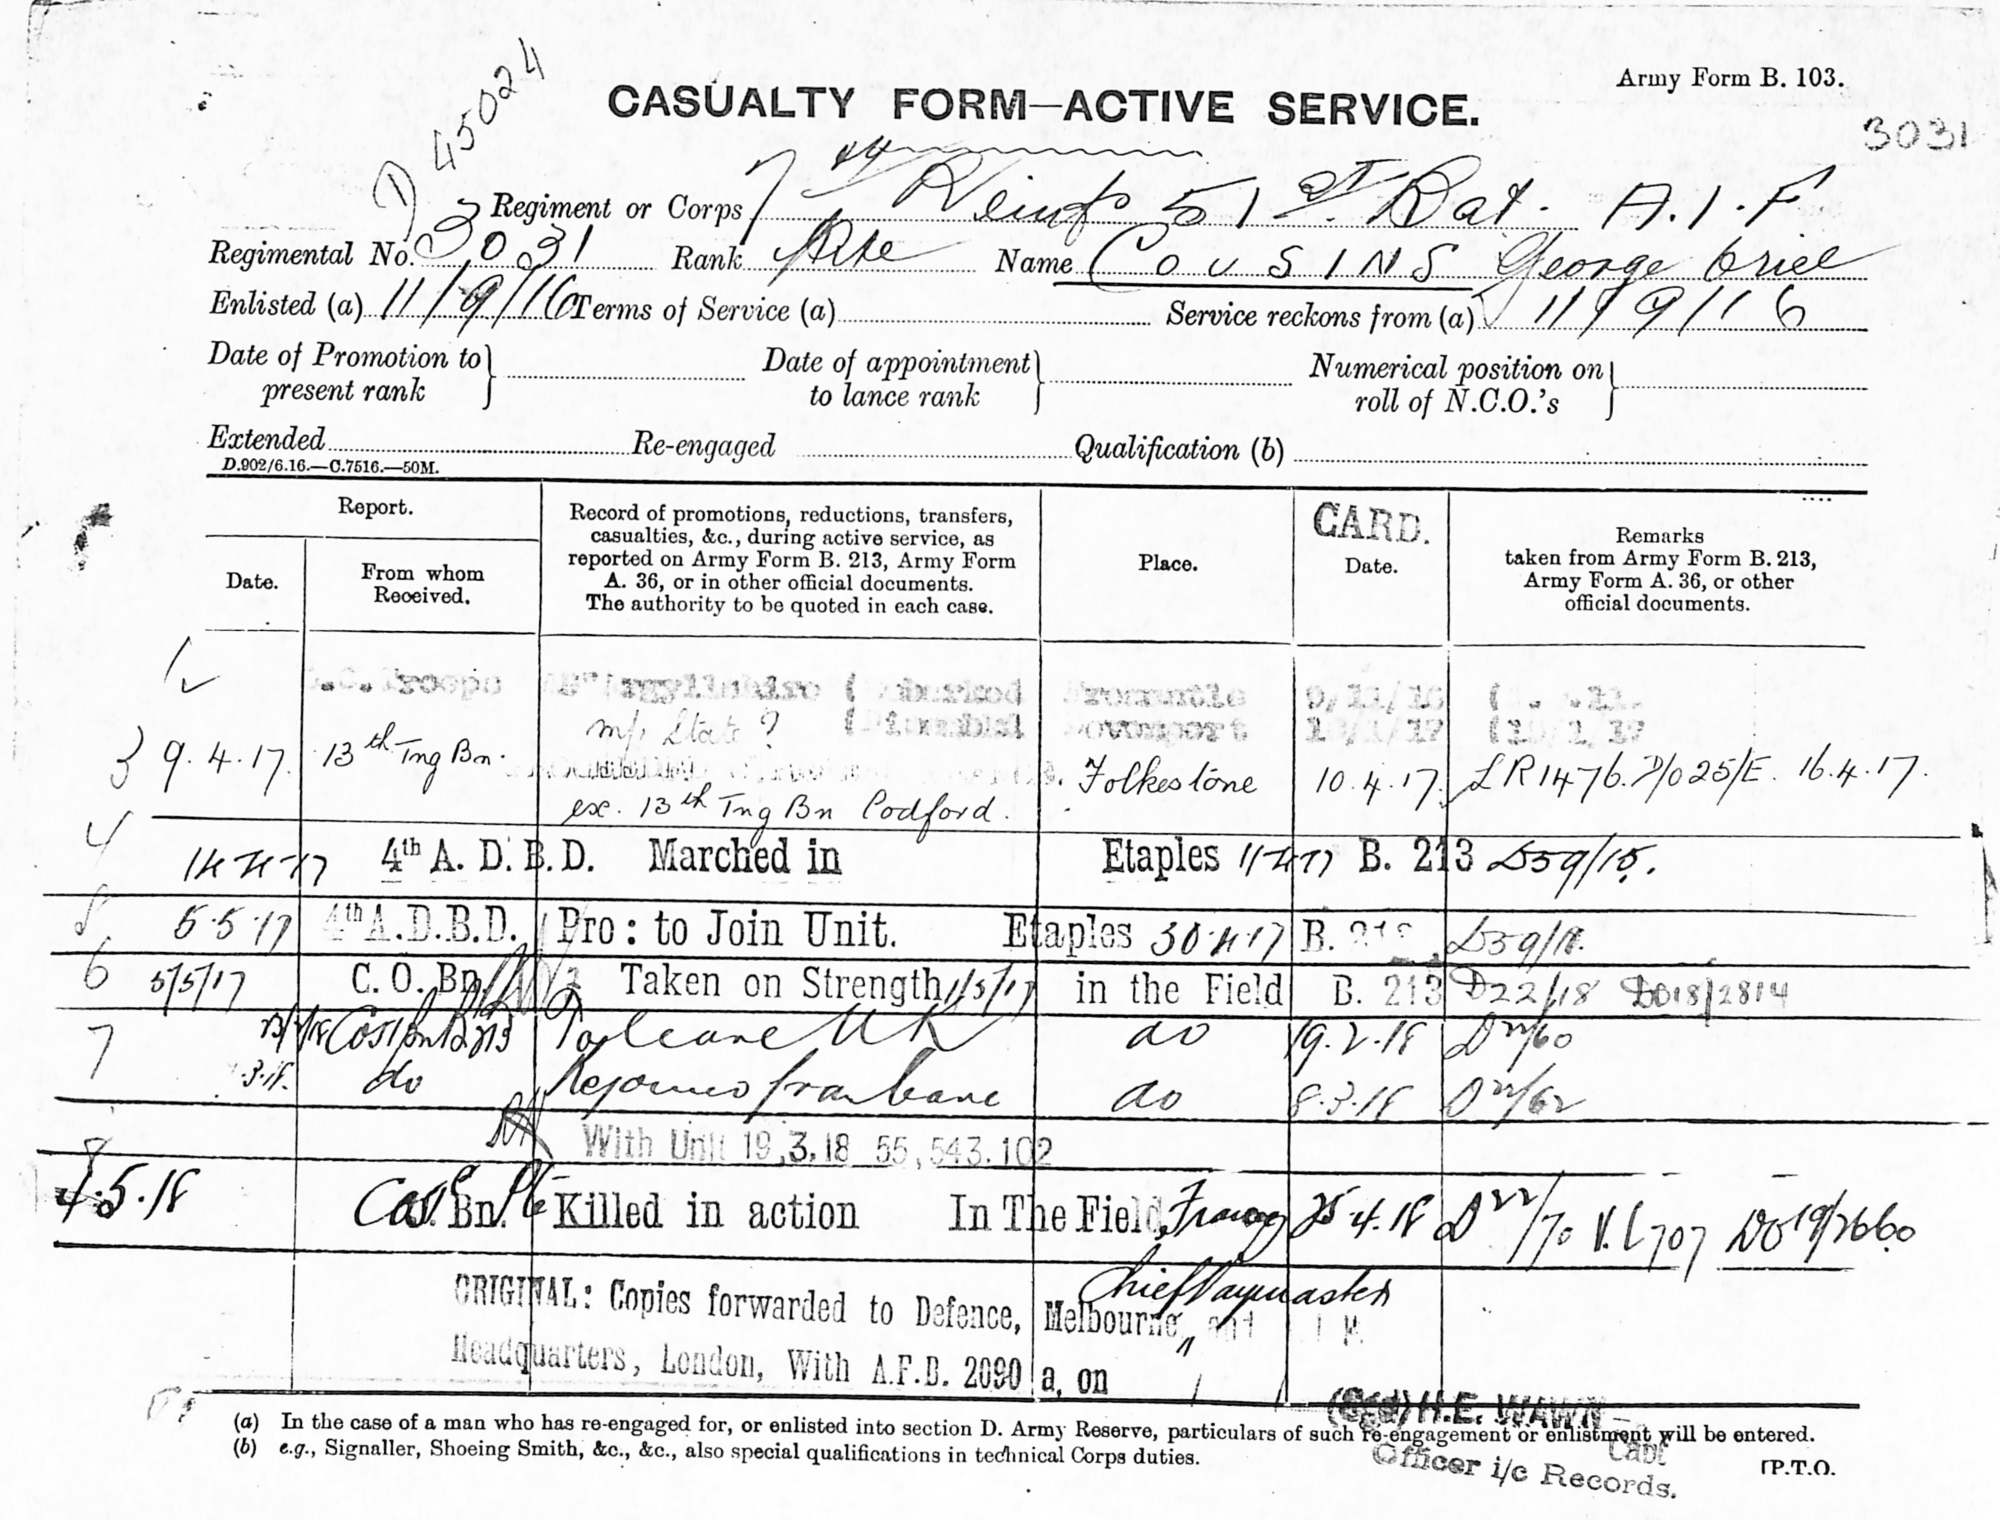 D 45024
Army Form B. 103.
CASUALTY FORM—ACTIVE SERVICE.
3031
Regiment or Corps 7th Reinfs 51st Bat. A.I.F
Regimental No. 3031 Rank Pte Name COUSINS George
Enlisted (a) 11/9/16 Terms of Service (a) Service reckons from (a) 11/9/16
Date of Promotion to present rank } Date of appointment to lance rank } Numerical position on roll of N.C.O.'s }
Extended Re-engaged Qualification (b)
D.902/6.16.—C.7516.—50M.
Report.
Date.
From whom
Received.
Record of promotions, reductions, transfers,
casualties, &c., during active service, as
reported on Army Form B. 213, Army Form
A. 36, or in other official documents.
The authority to be quoted in each case.
Place.
CARD.
Date.
Remarks
taken from Army Form B. 213,
Army Form A. 36, or other
official documents.
Troops (Embarked Fremantle 9/11/16
State ? Devonport
3 9.4.17. 13th Tng Bn. Folkestone 10.4.17. LR1476. D/025/E. 16.4.17.
ex. 13th Tng Bn Codford.
4 14 4 17 4th A. D. B. D. Marched in Etaples 11 4 17 B. 213 D59/15.
5 5.5.17 4th A.D.B.D. Pro: to Join Unit. Etaples 30.4.17 B. 213 D59/18.
6 5/5/17 C. O. Bn. Taken on Strength 1/5/17 in the Field B. 213 D22/18 DO18/2814
7 To leave UK do 19.2.18 D22/60
3.18. do Rejoined from leave do 8.3.18 D22/62
With Unit 19.3.18 55,543.102
8
4.5.18 Bn. Killed in action In The Field, France 25.4.18 D22/70 V.C707 DO19/2660
Chief Paymaster
ORIGINAL: Copies forwarded to Defence, Melbourne and
Headquarters, London, With A.F.B. 2090 a, on
(Sgd) H.E. WAWN
(a) In the case of a man who has re-engaged for, or enlisted into section D. Army Reserve, particulars of such re-engagement or enlistment will be entered.
Capt
(b) e.g., Signaller, Shoeing Smith, &c., &c., also special qualifications in technical Corps duties.
Officer i/c Records.
[P.T.O.